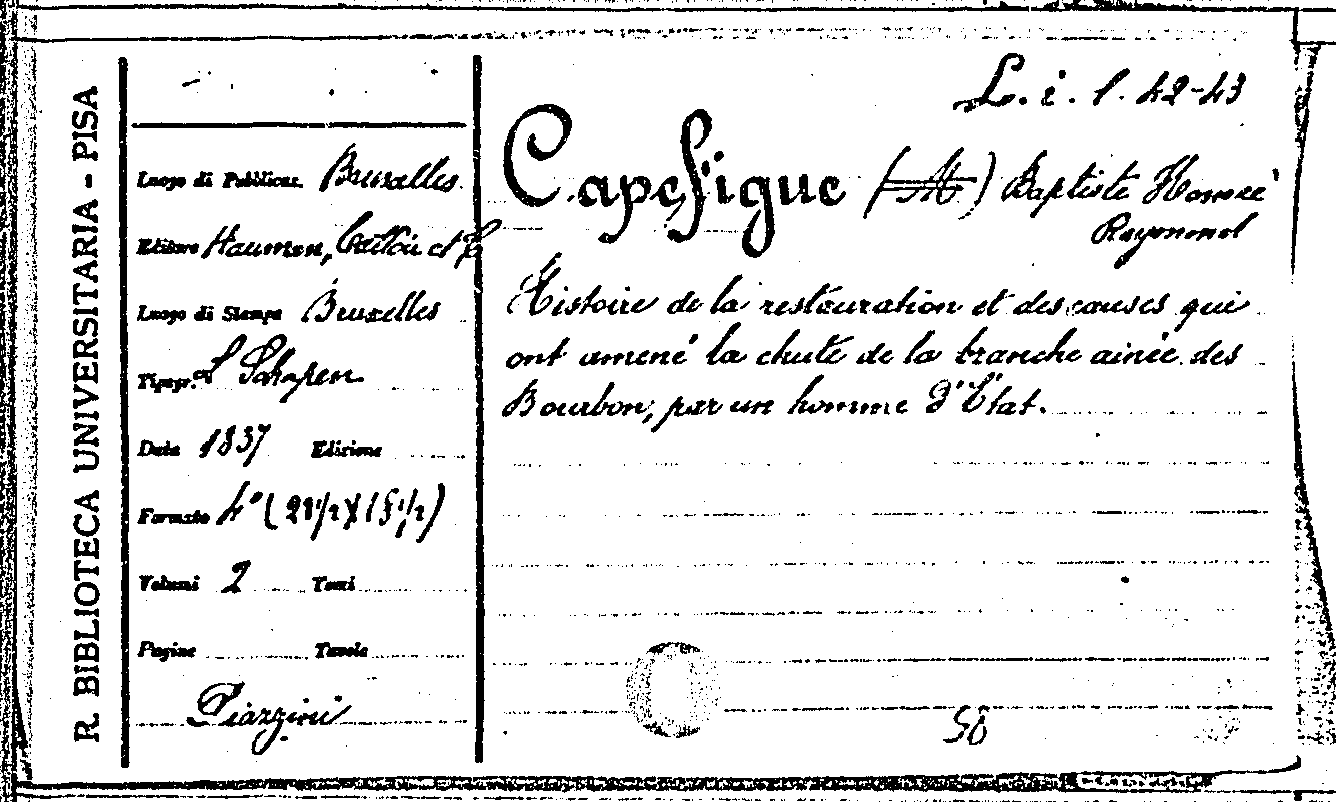 R. BIBLIOTECA UNIVERSITARIA - PISA
L. i. 1. 42-43
Capefigue (M) Baptiste Honoré
Raymond
Histoire de la restauration et des causes qui
ont amené la chute de la branche ainée des
Bourbon, par un homme d'État.
Luogo di Pubblicaz. Bruxelles
Editore Hauman, Cattoir et C
Luogo di Stampa Bruxelles
Tipogr. Schapen
Data 1837 Edizione
Formato 4° (21/2)(15 1/2)
Volumi 2 Tomi
Pagine Tavole
Piazzini